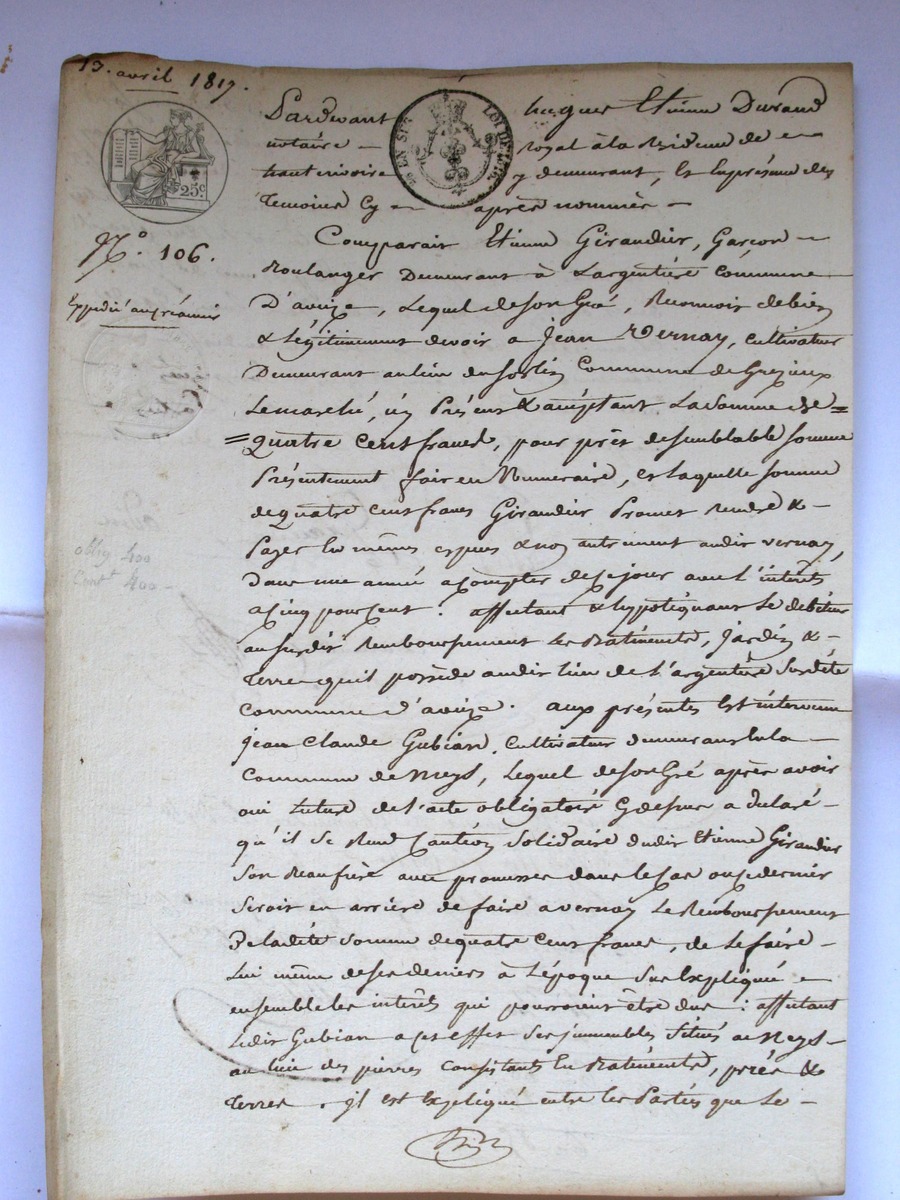 13. avril 1817.
Pardevant hugues Etienne Durand
notaire royal à la Residence de
hauterivoire y demeurant, Et En présence des
temoins Cy après nommés
25c.
LOI DE
N.o 106.
Comparait Etienne Giraudier, Garçon
Boulanger Demeurant à Largentière Commune
Expédié au créancier
D'aveize, Lequel de son Gré, Reconnoit debien
& Légitimement devoir a Jean Vernay, Cultivateur
Demeurant au lieu du Commune de Grezieux
Lemarché, icy Présent & acceptant La Somme de =
= Quatre Cent francs, pour prêt de semblable Somme
Présentement fait en Numeraire, et laquelle Somme
de quatre Cent francs Giraudier Promet Rendre &
Payer En mêmes especes & non autrement audit vernay,
oblig 400
Dans une année a Compter de ce jour avec l'intérêt
Cent 400
a Cinq pour cent : affectant & hypotéquant Le débiteur
au susdit Remboursement les Batiments, Jardin &
terre quil possède audit lieu de L'argentière Susdite
Commune d'aveize. aux présentes Est intervenu
Jean Claude Gubian, Cultivateur demeurant En la
Commune de Meys, Lequel de Son Gré après avoir
oui Lecture de l'acte obligatoire Cy dessus a déclaré
qu'il Se Rend Caution Solidaire dudit Etienne Giraudier
Son Beaufrère avec promesse dans le Cas ou ce dernier
Seroit en arrière de faire a vernay Le Remboursement
De ladite Somme de quatre Cent francs, de Le faire
Lui même de ses deniers à L'époque Sus Expliquée
ensemble les intérêts qui pourroient être dus : affectant
Ledit Gubian a cet effet Ses immeubles Situés a Meys
au lieu des pierres Consistants En Batiments, prés &
terres. il est Expliqué entre les Parties que Le